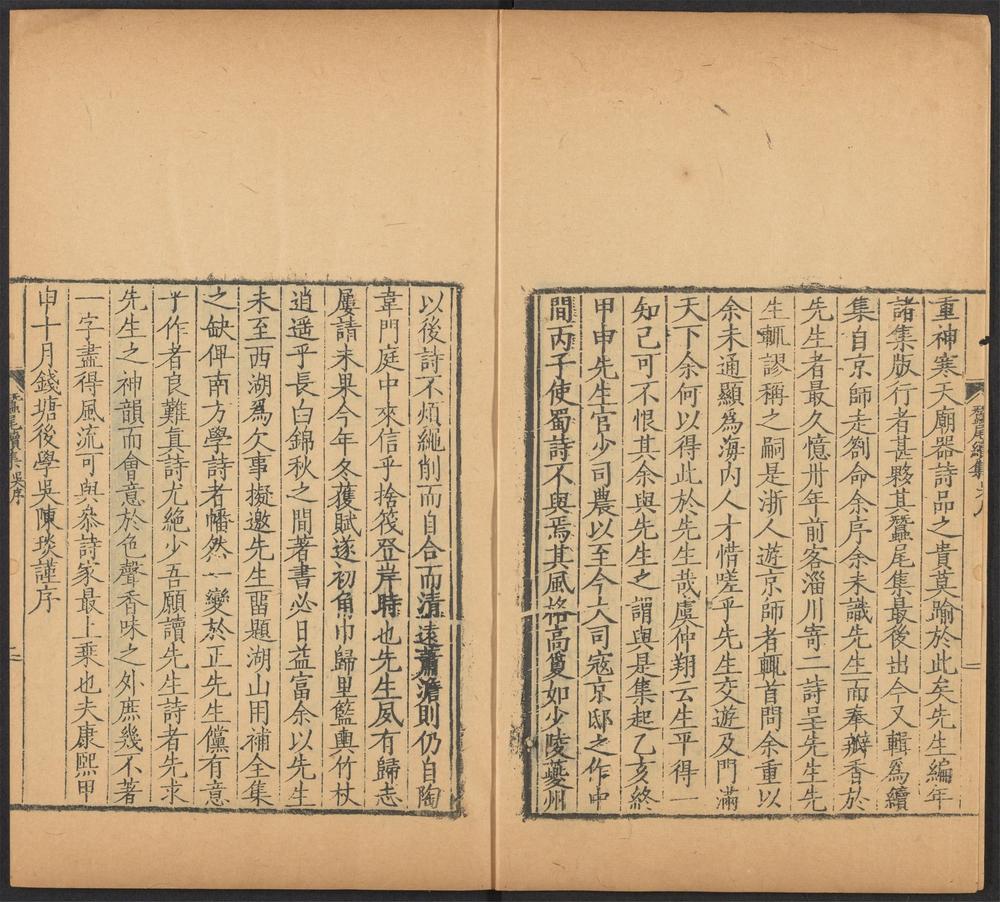 重神寒天廟器詩品之貴莫踰於此矣先生編年
諸集版行者甚夥其蠶尾集最後出今又輯爲續
集自京師走劄命余序余未識先生而奉瓣香於
先生者最久憶卅年前客淄川寄二詩呈先生先
生輒謬稱之嗣是浙人遊京師者輒首問余重以
余未通顯爲海內人才惜嗟乎先生交遊及門滿
天下余何以得此於先生哉虞仲翔云生平得一
知己可不恨其余與先生之謂與是集起乙亥終
甲申先生官少司農以至今大司寇京邸之作中
間丙子使蜀詩不與焉其風格高夐如少陵夔州
以後詩不煩繩削而自合而清遠蕭澹則仍自陶
韋門庭中來信乎捨筏登岸時也先生夙有歸志
屢請未果今年冬獲賦遂初角巾歸里籃輿竹杖
逍遥乎長白錦秋之間著書必日益富余以先生
未至西湖爲欠事擬邀先生畱題湖山用補全集
之缺俾南方學詩者幡然一變於正先生儻有意
乎作者良難真詩尤絶少吾願讀先生詩者先求
先生之神韻而會意於色聲香味之外庶幾不著
一字盡得風流可與叅詩家最上乗也夫康熙甲
申十月錢塘後學吳陳琰謹序
蠶尾續集吳序
二